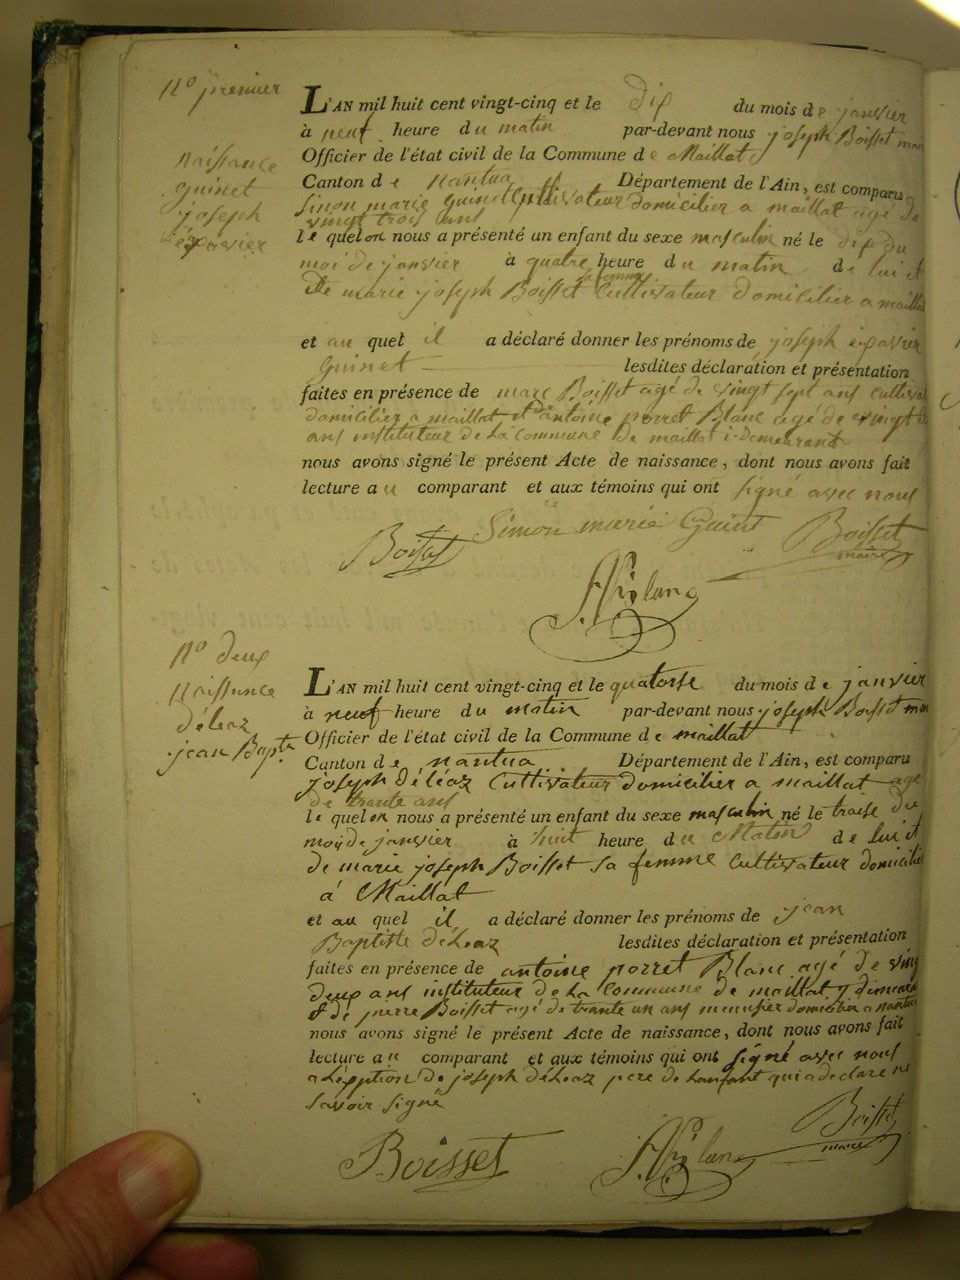 No premier
Naissance
guinet
joseph
L'AN mil huit cent vingt-cinq et le dix du mois de janvier
à neuf heure du matin par-devant nous joseph Boisset maire
Officier de l'état civil de la Commune de Maillat
Canton de Nantua Département de l'Ain, est comparu
Simon marie guinet Cultivateur domicilier a maillat agé de
vingt trois ans
le quel on nous a présenté un enfant du sexe masculin né le dix du
moi de janvier à quatre heure du matin de lui et
de marie joseph Boisset sa femme Cultivateur domicilier a maillat
et au quel il a déclaré donner les prénoms de joseph
Guinet lesdites déclaration et présentation
faites en présence de marc Boisset agé de vingt sept ans cultivat
domicilier a maillat et de antoine porret Blanc agé de vingt
ans instituteur de la commune de maillat i demeurant
nous avons signé le présent Acte de naissance, dont nous avons fait
lecture au comparant et aux témoins qui ont signé avec nous
Boisset Simon marie Guint Boisset
maire
No deux
Naissance
déléaz
jean Bapte
L'AN mil huit cent vingt-cinq et le quatorse du mois de janvier
à neuf heure du matin par-devant nous joseph Boisset maire
Officier de l'état civil de la Commune de maillat
Canton de nantua Département de l'Ain, est comparu
joseph déléaz Cultivateur domicilier a maillat agé
de trante ans
le quel on nous a présenté un enfant du sexe masculin né le traise du
moy de janvier à huit heure du Matin de lui et
de marie joseph Boisset sa femme Cultivateur domicilié
à Maillat
et au quel il a déclaré donner les prénoms de jean
Baptiste déléaz lesdites déclaration et présentation
faites en présence de antoine porret Blanc agé de ving
deux ans instituteur de la Commune de maillat y demeura
& de pierre Boisset agé de trante un ans menusier domicilier a nantua
nous avons signé le présent Acte de naissance, dont nous avons fait
lecture au comparant et aux témoins qui ont signé avec nous
a léxption de joseph déléaz pere de lanfant qui a declaré ne
savoir signé
Boisset Boisset
maire